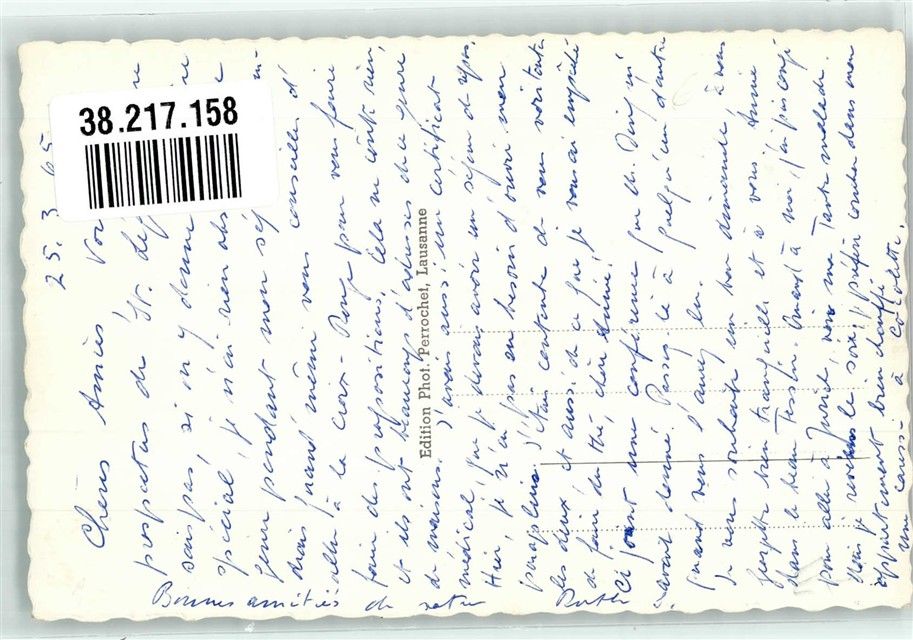 38.217.158
25. 3. 65
Chères Amies, Vou
prospectus de St. Lég
sais pas, si on y donne
spécial, je n'ai rien obs
geür pendant mon séj
drais quand même vous conseiller d'
aller à la Croix-Rouge pour vous faire
faire des propositions, cela ne coûte rien,
et ils ont beaucoup d'adresses de ce genre
de maisons. J'avais aussi un certificat
médical, que je devais avoir un séjour de repos.
Hier, je n'ai pas eu besoin d'ouvrir mon
parapluie. J'étais contente de vous voir toutes
les deux et aussi de ce que je vous ai empêché
de faire du thé, chère Annie!
Ci joint une conférence par un
savant donné. Passez-le à quelqu'un d'autre
quand vous l'aurez lu.
Je vous souhaite un bon dimanche à vous
bien tranquille et à vous Annie
dans le beau Tessin. Quant à moi, j'ai pas congé
pour aller à Zurich, voir ma Tante malade.
mais je le soir, je préfère coucher dans mon
appartement bien chauffé
un à Colette.
Bonnes amitiés de votre Ruth
Edition Phot. Perrochet, Lausanne